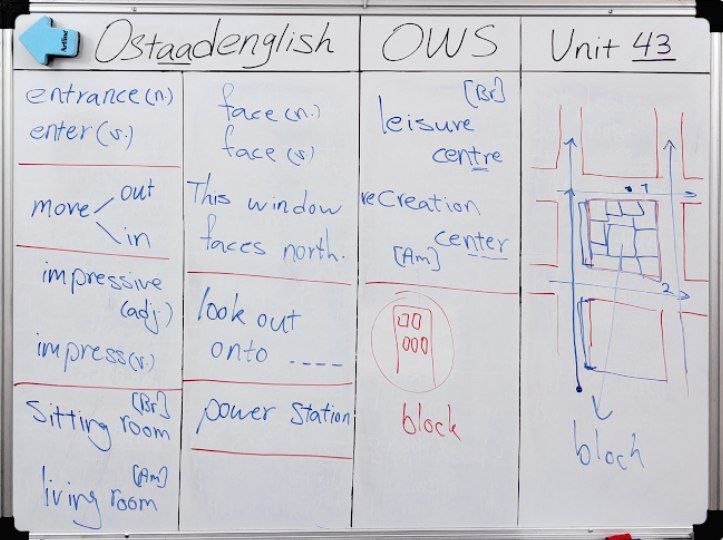 Ostaadenglish
OWS
Unit 43
Artline
entrance (n.)
enter (v.)
move
out
in
impressive
(adj.)
impress (v.)
[Br]
Sitting room
[Am]
living room
face (n.)
face (v)
This window
faces north.
look out
onto ----
power station
[Br]
leisure
centre
recreation
center
[Am]
block
1
2
block